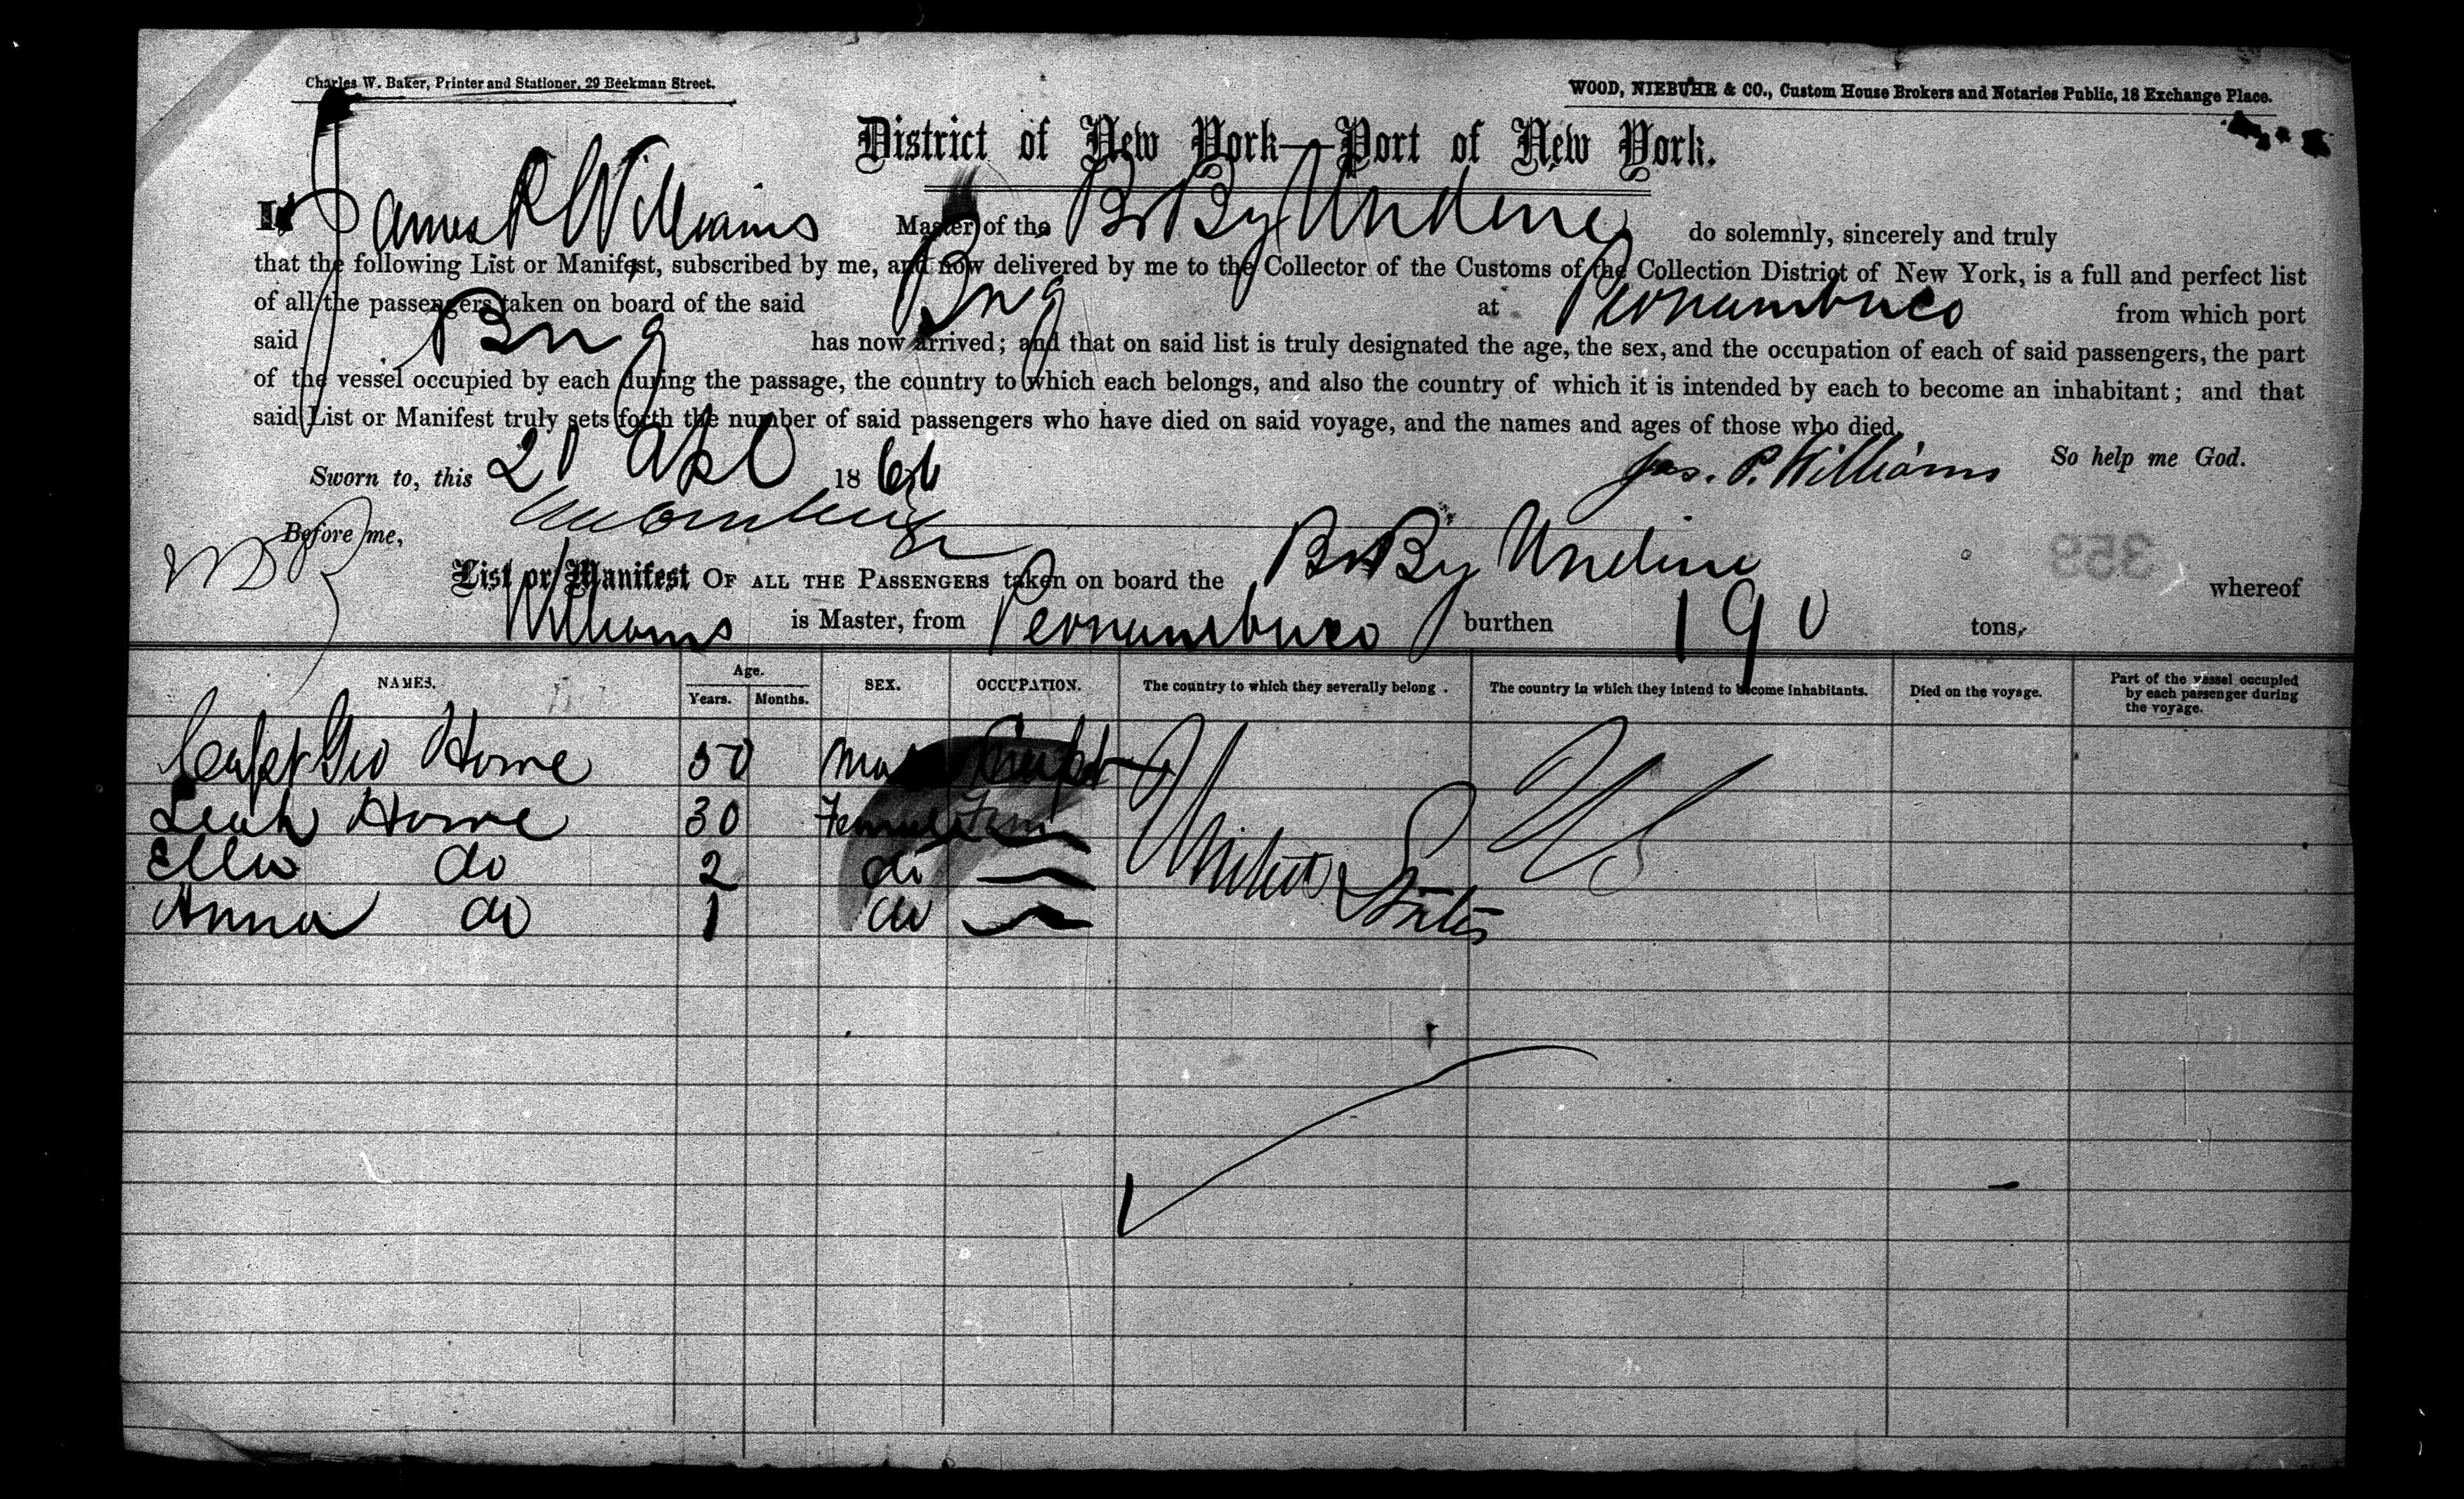 Charles W. Baker, Printer and Stationer, 29 Beekman Street.
WOOD, NIEBUHR & CO., Custom House Brokers and Notaries Public, 18 Exchange Place.
District of New York—Port of New York.
I, James P Williams Master of the Br Bg Undine do solemnly, sincerely and truly
that the following List or Manifest, subscribed by me, and now delivered by me to the Collector of the Customs of the Collection District of New York, is a full and perfect list
of all the passengers taken on board of the said Brig at Pernambuco from which port
said Brig has now arrived; and that on said list is truly designated the age, the sex, and the occupation of each of said passengers, the part
of the vessel occupied by each during the passage, the country to which each belongs, and also the country of which it is intended by each to become an inhabitant; and that
said List or Manifest truly sets forth the number of said passengers who have died on said voyage, and the names and ages of those who died.
So help me God.
Sworn to, this 21 Apl 1866 Jas. P. Williams
Before me,
List or Manifest OF ALL THE PASSENGERS taken on board the Br Bg Undine whereof
Williams is Master, from Pernambuco burthen 190 tons,
359
NAMES. Age. Years. Months. SEX. OCCUPATION. The country to which they severally belong. The country in which they intend to become inhabitants. Died on the voyage. Part of the vessel occupied by each passenger during the voyage.
Capt Geo Horne 50 Male Capt United States U S
Leah Horne 30 Female
Ella do 2 do
Anna do 1 do